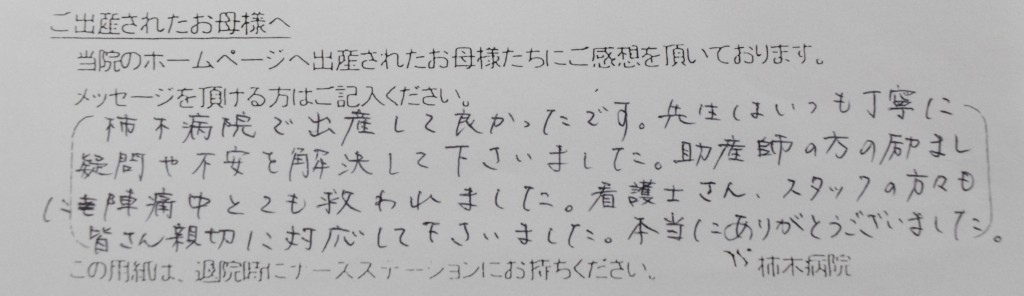 ご出産されたお母様へ
当院のホームページへ出産されたお母様たちにご感想を頂いております。
メッセージを頂ける方はご記入ください。
柿木病院で出産して良かったです。先生はいつも丁寧に
疑問や不安を解決して下さいました。助産師の方の励まし
にも陣痛中とても救われました。看護士さん、スタッフの方々も
皆さん親切に対応して下さいました。本当にありがとうございました。
この用紙は、退院時にナースステーションにお持ちください。
柿木病院